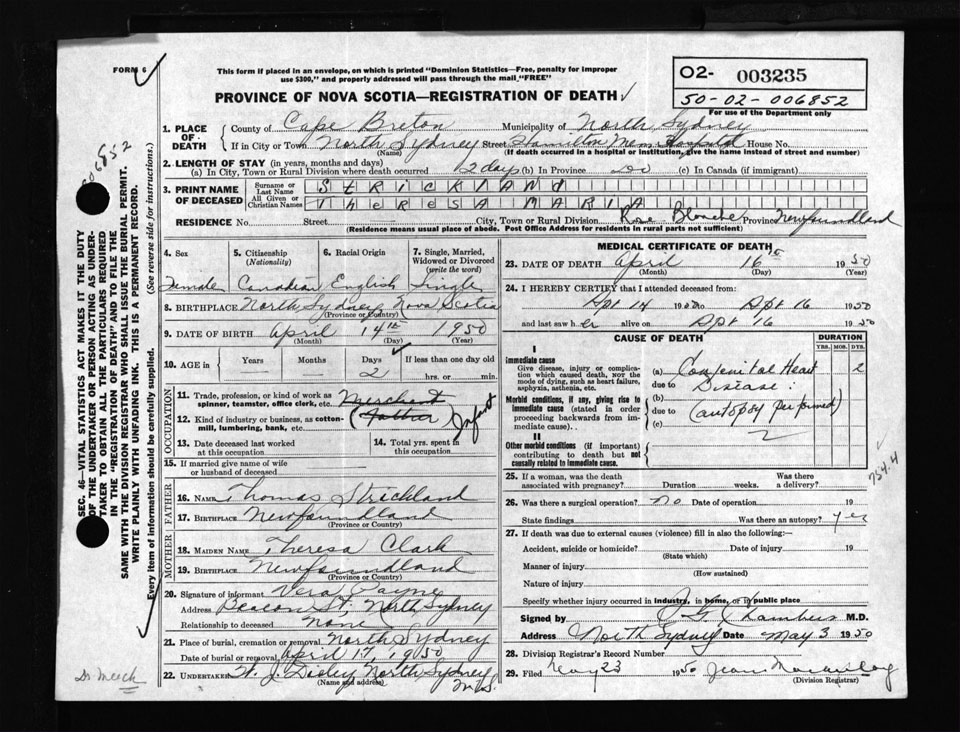 FORM 6
This form if placed in an envelope, on which is printed "Dominion Statistics—Free, penalty for improper
use $300," and properly addressed will pass through the mail "FREE"
O2- 003235
50-02-006852
For use of the Department only
PROVINCE OF NOVA SCOTIA—REGISTRATION OF DEATH
006852
SEC. 46—VITAL STATISTICS ACT MAKES IT THE DUTY
OF THE UNDERTAKER OR PERSON ACTING AS UNDER-
TAKER TO OBTAIN ALL THE PARTICULARS REQUIRED
IN THE "REGISTRATION OF DEATH" AND TO FILE THE
SAME WITH THE DIVISION REGISTRAR WHO SHALL ISSUE THE BURIAL PERMIT.
WRITE PLAINLY WITH UNFADING INK. THIS IS A PERMANENT RECORD.
Every item of information should be carefully supplied. (See reverse side for instructions.)
1. PLACE OF DEATH
County of Cape Breton Municipality of North Sydney
If in City or Town North Sydney Street Hamilton Mem. Hospital House No.
(Name) (If death occurred in a hospital or institution, give the name instead of street and number)
2. LENGTH OF STAY (in years, months and days)
(a) In City, Town or Rural Division where death occurred 2 days (b) In Province (c) In Canada (if immigrant)
3. PRINT NAME OF DECEASED
Surname or Last Name STRICKLAND
All Given or Christian Names THERESA MARIA
RESIDENCE No. Street City, Town or Rural Division Rose Blanche Province Newfoundland
(Residence means usual place of abode. Post Office Address for residents in rural parts not sufficient)
4. Sex 5. Citizenship (Nationality) 6. Racial Origin 7. Single, Married, Widowed or Divorced (write the word)
Female Canadian English Single
8. BIRTHPLACE North Sydney Nova Scotia
(Province or Country)
9. DATE OF BIRTH April 14th 1950
(Month) (Day) (Year)
10. AGE in Years Months Days If less than one day old
2 hrs. or min.
OCCUPATION
11. Trade, profession, or kind of work as spinner, teamster, office clerk, etc. Merchant
12. Kind of industry or business, as cotton-mill, lumbering, bank, etc. (Father) Infant
13. Date deceased last worked at this occupation
14. Total yrs. spent in this occupation
15. If married give name of wife or husband of deceased
FATHER
16. NAME Thomas Strickland
17. BIRTHPLACE Newfoundland
(Province or Country)
MOTHER
18. MAIDEN NAME Theresa Clark
19. BIRTHPLACE Newfoundland
(Province or Country)
20. Signature of informant Vera Payne
Address Beacon St, North Sydney
Relationship to deceased none
21. Place of burial, cremation or removal North Sydney
Date of burial or removal April 17, 1950
22. UNDERTAKER North Sydney N.S.
(Name and address)
MEDICAL CERTIFICATE OF DEATH
23. DATE OF DEATH April 16th 1950
(Month) (Day) (Year)
24. I HEREBY CERTIFY that I attended deceased from:
Apl 14 1950 to Apl 16 1950
and last saw her alive on Apl 16 1950
CAUSE OF DEATH DURATION
YRS. MOS. DYS.
I
Immediate cause
Give disease, injury or complication which caused death, NOT the mode of dying, such as heart failure, asphyxia, asthenia, etc.
(a) Congenital Heart 2
due to Disease:
Morbid conditions, if any, giving rise to immediate cause (stated in order proceeding backwards from immediate cause).
(b)
due to (autopsy performed)
(c)
II
Other morbid conditions (if important) contributing to death but not causally related to immediate cause.
754.4
25. If a woman, was the death associated with pregnancy? Duration weeks. Was there a delivery?
26. Was there a surgical operation? no Date of operation 19
State findings Was there an autopsy? yes
27. If death was due to external causes (violence) fill in also the following:—
Accident, suicide or homicide? Date of injury 19
(State which)
Manner of injury
(How sustained)
Nature of injury
Specify whether injury occurred in industry, in home, or in public place
Signed by Chambers M.D.
Address North Sydney Date May 3 1950
28. Division Registrar's Record Number
29. Filed May 23 1950 Jean
(Division Registrar)